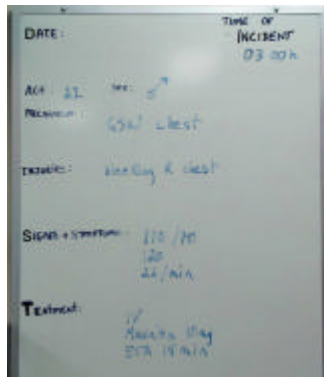 DATE:
TIME OF
INCIDENT
03 00h
AGE: 22 SEX: ♂
MECHANISM:
GSW chest
INJURIES: bleeding R chest
SIGNS + SYMPTOMS: 110/70
120
22/min
TREATMENT:
IV
10mg
ETA 15 min